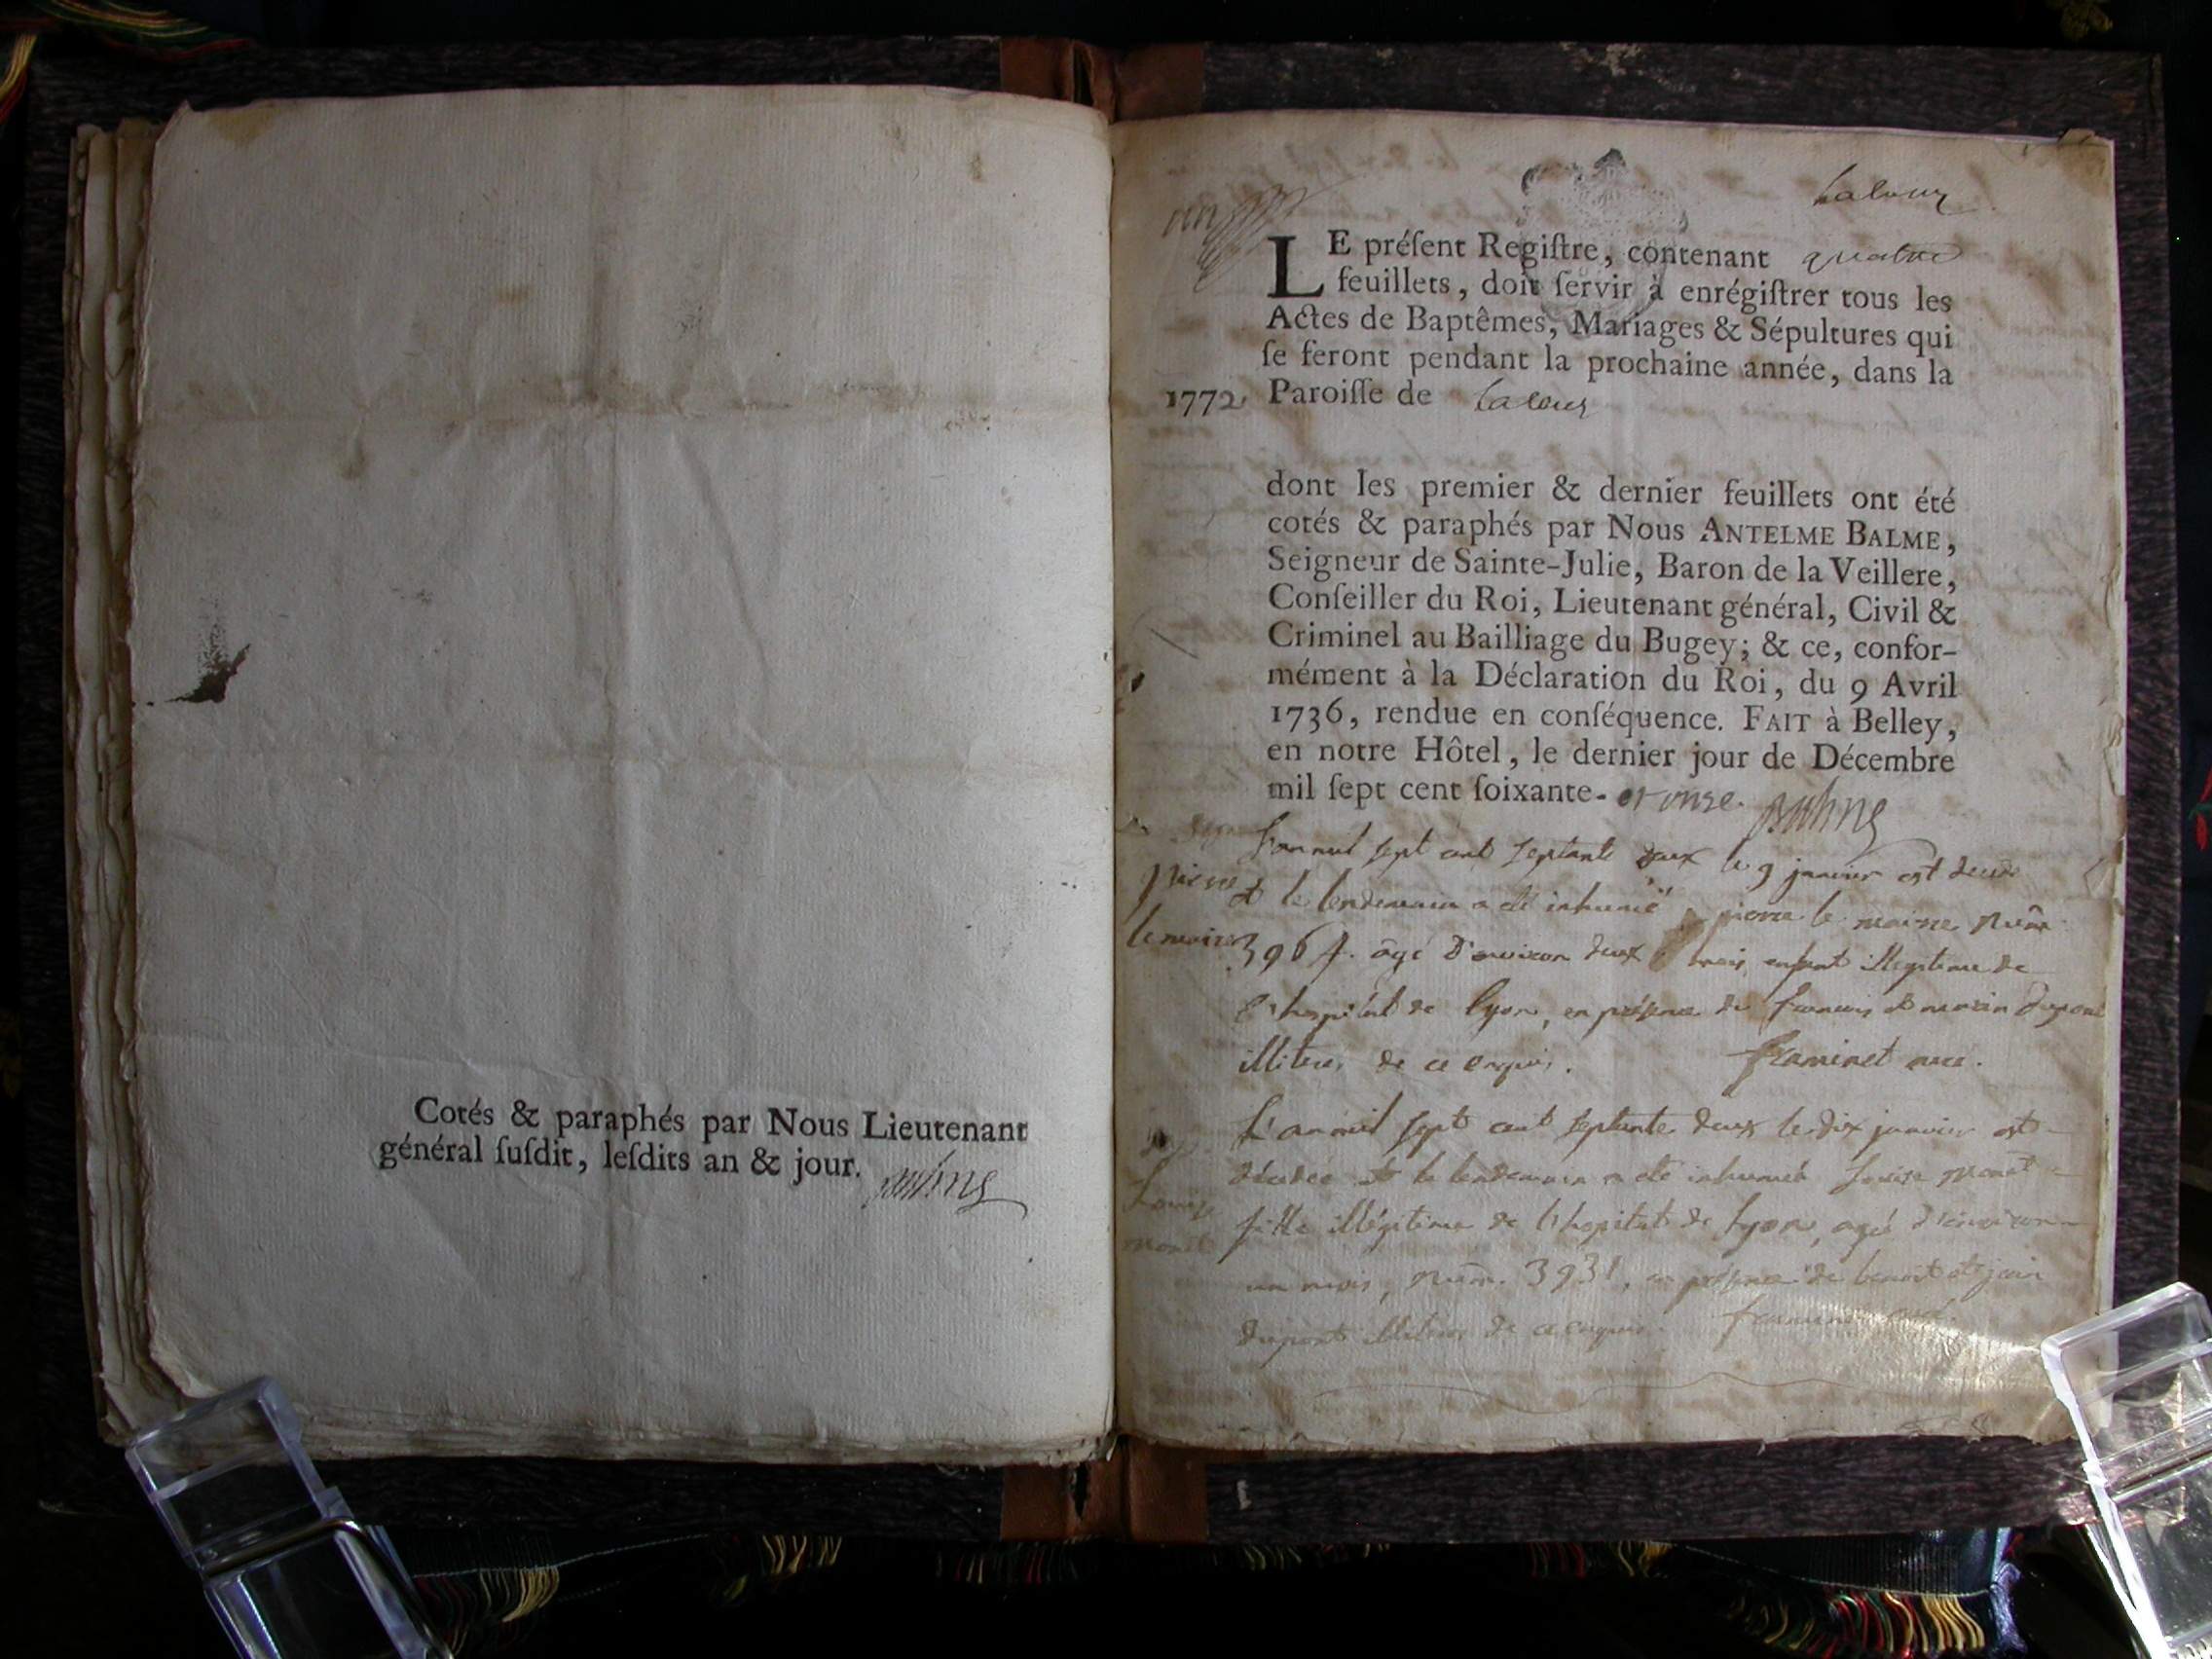 Cotés & paraphés par Nous Lieutenant
général ſuſdit, leſdits an & jour.
LE préſent Regiſtre, contenant quatre
feuillets, doit ſervir à enrégiſtrer tous les
Actes de Baptêmes, Mariages & Sépultures qui
ſe feront pendant la prochaine année, dans la
1772 Paroiſſe de
dont les premier & dernier feuillets ont été
cotés & paraphés par Nous ANTELME BALME,
Seigneur de Sainte-Julie, Baron de la Veillere,
Conſeiller du Roi, Lieutenant général, Civil &
Criminel au Bailliage du Bugey; & ce, confor-
mément à la Déclaration du Roi, du 9 Avril
1736, rendue en conſéquence. FAIT à Belley,
en notre Hôtel, le dernier jour de Décembre
mil ſept cent ſoixante- et onze.
L'an mil sept cent septante deux le 9 janvier est
pierre
et le lendemain a été inhumé pierre le moine num
le moine
3964. âgé d'environ deux mois enfant illegitime de
l'hopital de lyon, en présence de francois et dupont
illiteres de ce enquis.
L'an mil sept cent septante deux le dix janvier est
décedée et le lendemain a été inhumée Louise monet
Louise
monet
fille illégitime de l'hopital de lyon, agée d'environ
un mois, num. 3931, en présence de benoit et jean
dupont illiteres de ce enquis.